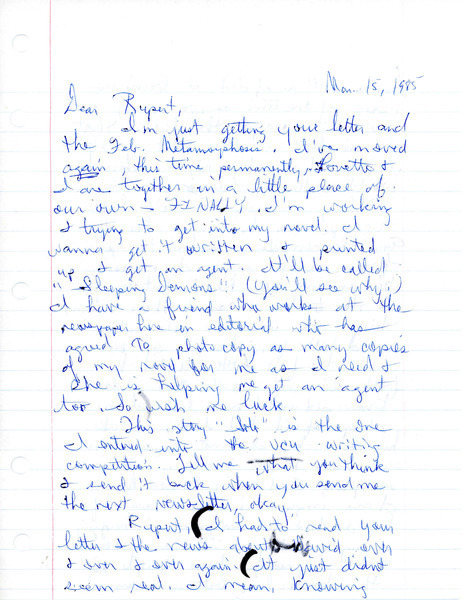 Mar. 15, 1985
Dear Rupert,
I'm just getting your letter and
the Feb. Metamorphosis. I've moved
again, this time, permanently, Lovetta &
I are together in a little place of
our own – FINALLY. I'm working
& trying to get into my novel. I
wanna get it written & printed
up & get an agent. It'll be called
"Sleeping Demons"! (You'll see why!)
I have a friend who works at the
newspaper here in editorial who has
agreed to photocopy as many copies
of my novel for me as I need &
she is helping me get an agent
too. So wish me luck.
This story is the one
I entered into the VCU writing
competition. Tell me what you think
& send it back when you send me
the next newsletter, okay.
Rupert, I had to read your
letter & the news about over
& over & over again. It just didn't
seem real. I mean, knowing